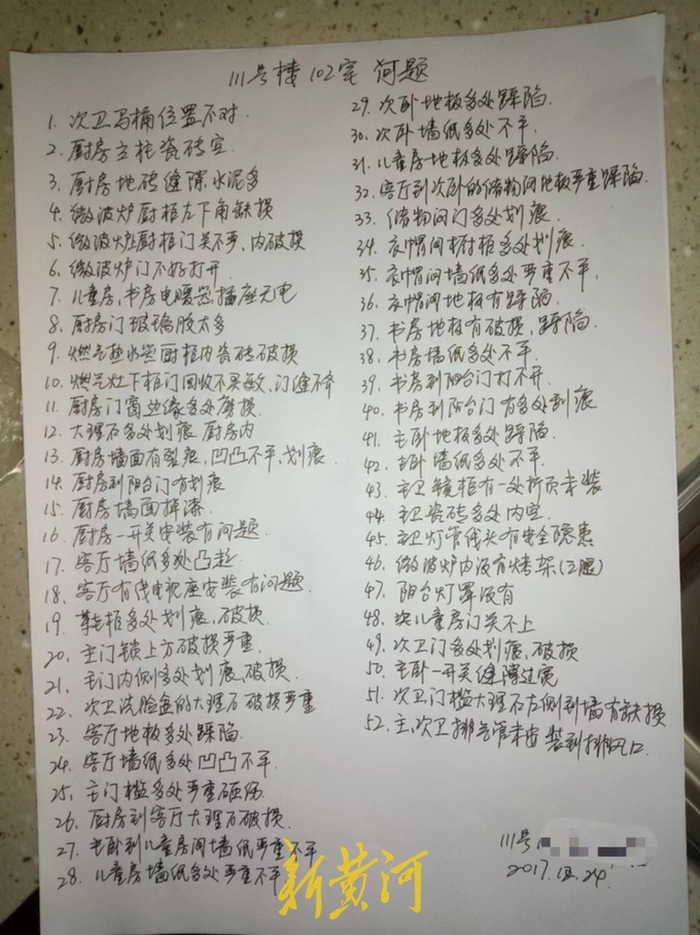 111号楼 102室 问题
1. 次卫马桶位置不对.
2. 厨房立柱瓷砖空
3. 厨房地砖缝隙水泥多
4. 微波炉厨柜左下角缺损
5. 微波炉厨柜门关不严、内破损
6. 微波炉门不好打开
7. 儿童房,书房电暖器,插座无电
8. 厨房门玻璃胶太多
9. 燃气热水器厨柜内瓷砖破损
10. 燃气灶下柜门回收不灵敏、门缝不齐
11. 厨房门窗边缘多处磨损.
12. 大理石多处划痕 厨房内
13. 厨房墙面有裂痕,凹凸不平,划痕.
14. 厨房到阳台门有划痕
15. 厨房墙面掉漆.
16. 厨房一开关安装有问题.
17. 客厅墙纸多处凸起
18. 客厅有线电视座安装有问题.
19. 鞋柜多处划痕,破损.
20. 主门锁上方破损严重.
21. 主门内侧多处划痕,破损.
22. 次卫洗脸盆的大理石破损严重
23. 客厅地板多处踩陷.
24. 客厅墙纸多处凹凸不平.
25. 主门槛多处严重砸伤.
26. 厨房到客厅大理石破损.
27. 主卧到儿童房间墙纸严重不平
28. 儿童房墙纸多处严重不平
29. 次卧地板多处踩陷.
30. 次卧墙纸多处不平.
31. 儿童房地板多处踩陷.
32. 客厅到次卧的储物间地板严重踩陷.
33. 储物间门多处划痕.
34. 衣帽间衬柜多处划痕.
35. 衣帽间墙纸多处严重不平.
36. 衣帽间地板有踩陷.
37. 书房地板有破损,踩陷.
38. 书房墙纸多处不平.
39. 书房到阳台门打不开.
40. 书房到阳台门有多处划痕
41. 主卧地板多处踩陷.
42. 主卧墙纸多处不平.
43. 主卫镜柜有一处折页未装
44. 主卫瓷砖多处内空.
45. 主卫灯管线头有安全隐患
46. 微波炉内没有烤架(三腿)
47. 阳台灯罩没有
48. 次儿童房门关不上
49. 次卫门多处划痕,破损
50. 主卧一开关缝隙过宽
51. 次卫门槛大理石左侧到墙有缺损
52. 主、次卫排气管未安装到排风口.
111号
2017.12.24
新黄河